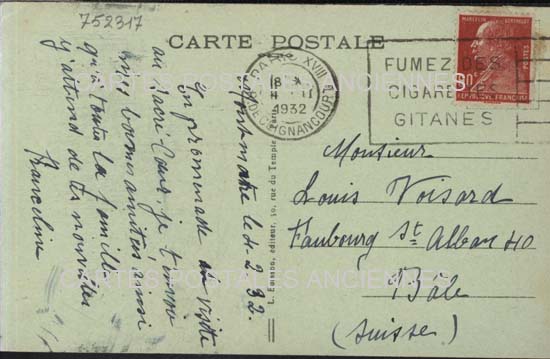 752317
CARTE POSTALE
PARIS XVIII
18
4 - II
1932
R. DE CLIGNANCOURT
FUMEZ DES
CIGARETTES
GITANES
MARCELIN BERTHELOT
POSTES
90c
REPUBLIQUE FRANÇAISE
CARTES POSTALES ANCIENNES
Montmartre le 4-2-32.
En promenade en visite
au Sacré-Cœur je t'envoie
mes bonnes amitiés ainsi
qu'à toute la famille
j'attend de tes nouvelles
Franceline
L. Edition, éditeur, rue du Temple, Paris
Monsieur
Louis Voisard
Faubourg St Alban 40
Bâle
(Suisse)
CARTES POSTALES ANCIENNES